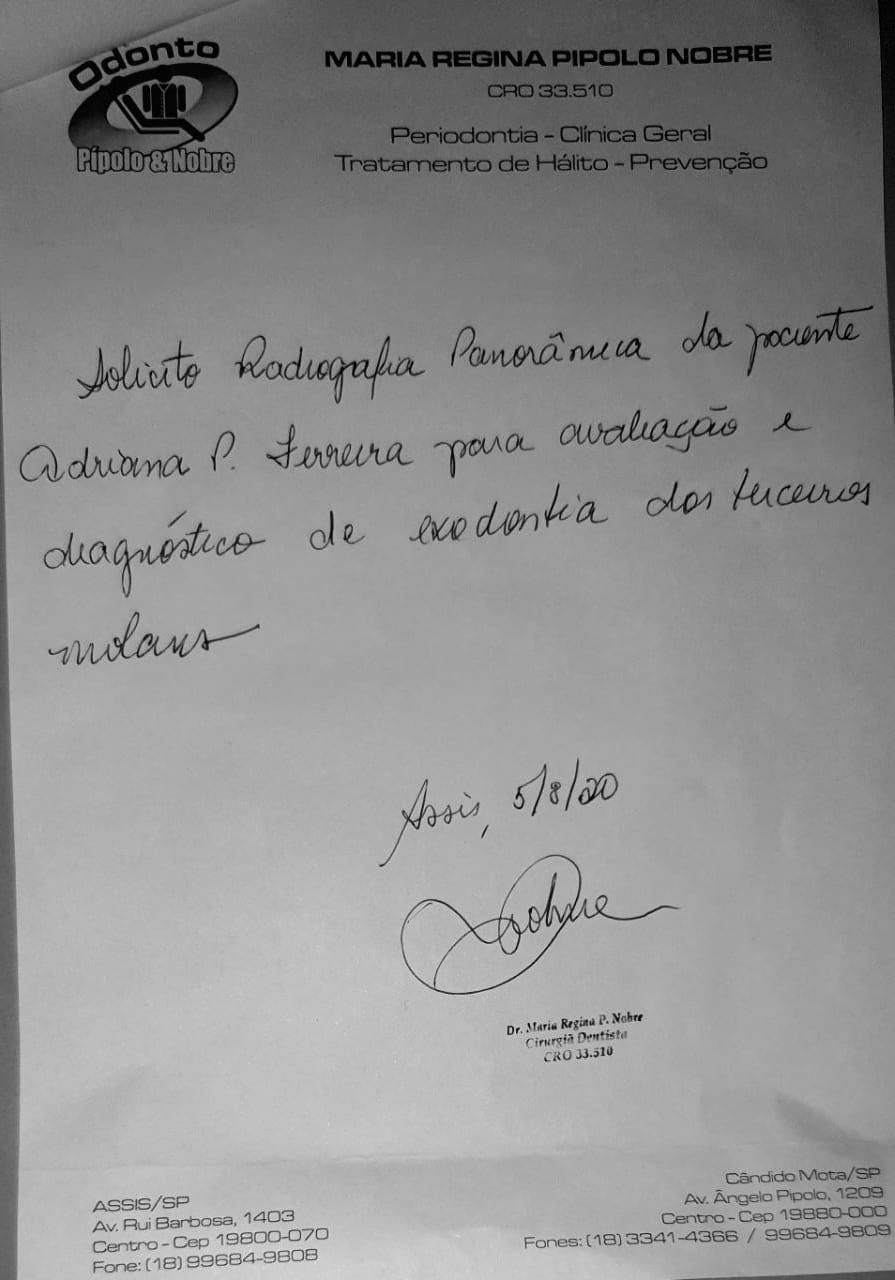 Odonto
Pípolo & Nobre
MARIA REGINA PIPOLO NOBRE
CRO 33.510
Periodontia - Clínica Geral
Tratamento de Hálito - Prevenção
Solicito Radiografia Panorâmica da paciente
Adriana P. Ferreira para avaliação e
diagnóstico de exodontia dos terceiros
molares
Assis, 5/8/20
Nobre
Dr. Maria Regina P. Nobre
Cirurgiã Dentista
CRO 33.510
ASSIS/SP
Av. Rui Barbosa, 1403
Centro - Cep 19800-070
Fone: (18) 99684-9808
Cândido Mota/SP
Av. Ângelo Pipolo, 1209
Centro - Cep 19880-000
Fones: (18) 3341-4366 / 99684-9809